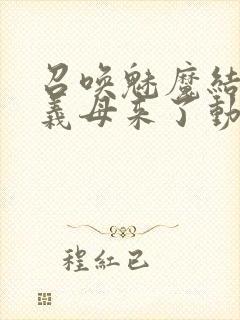 召唤魅魔结
义母来了动
程红已